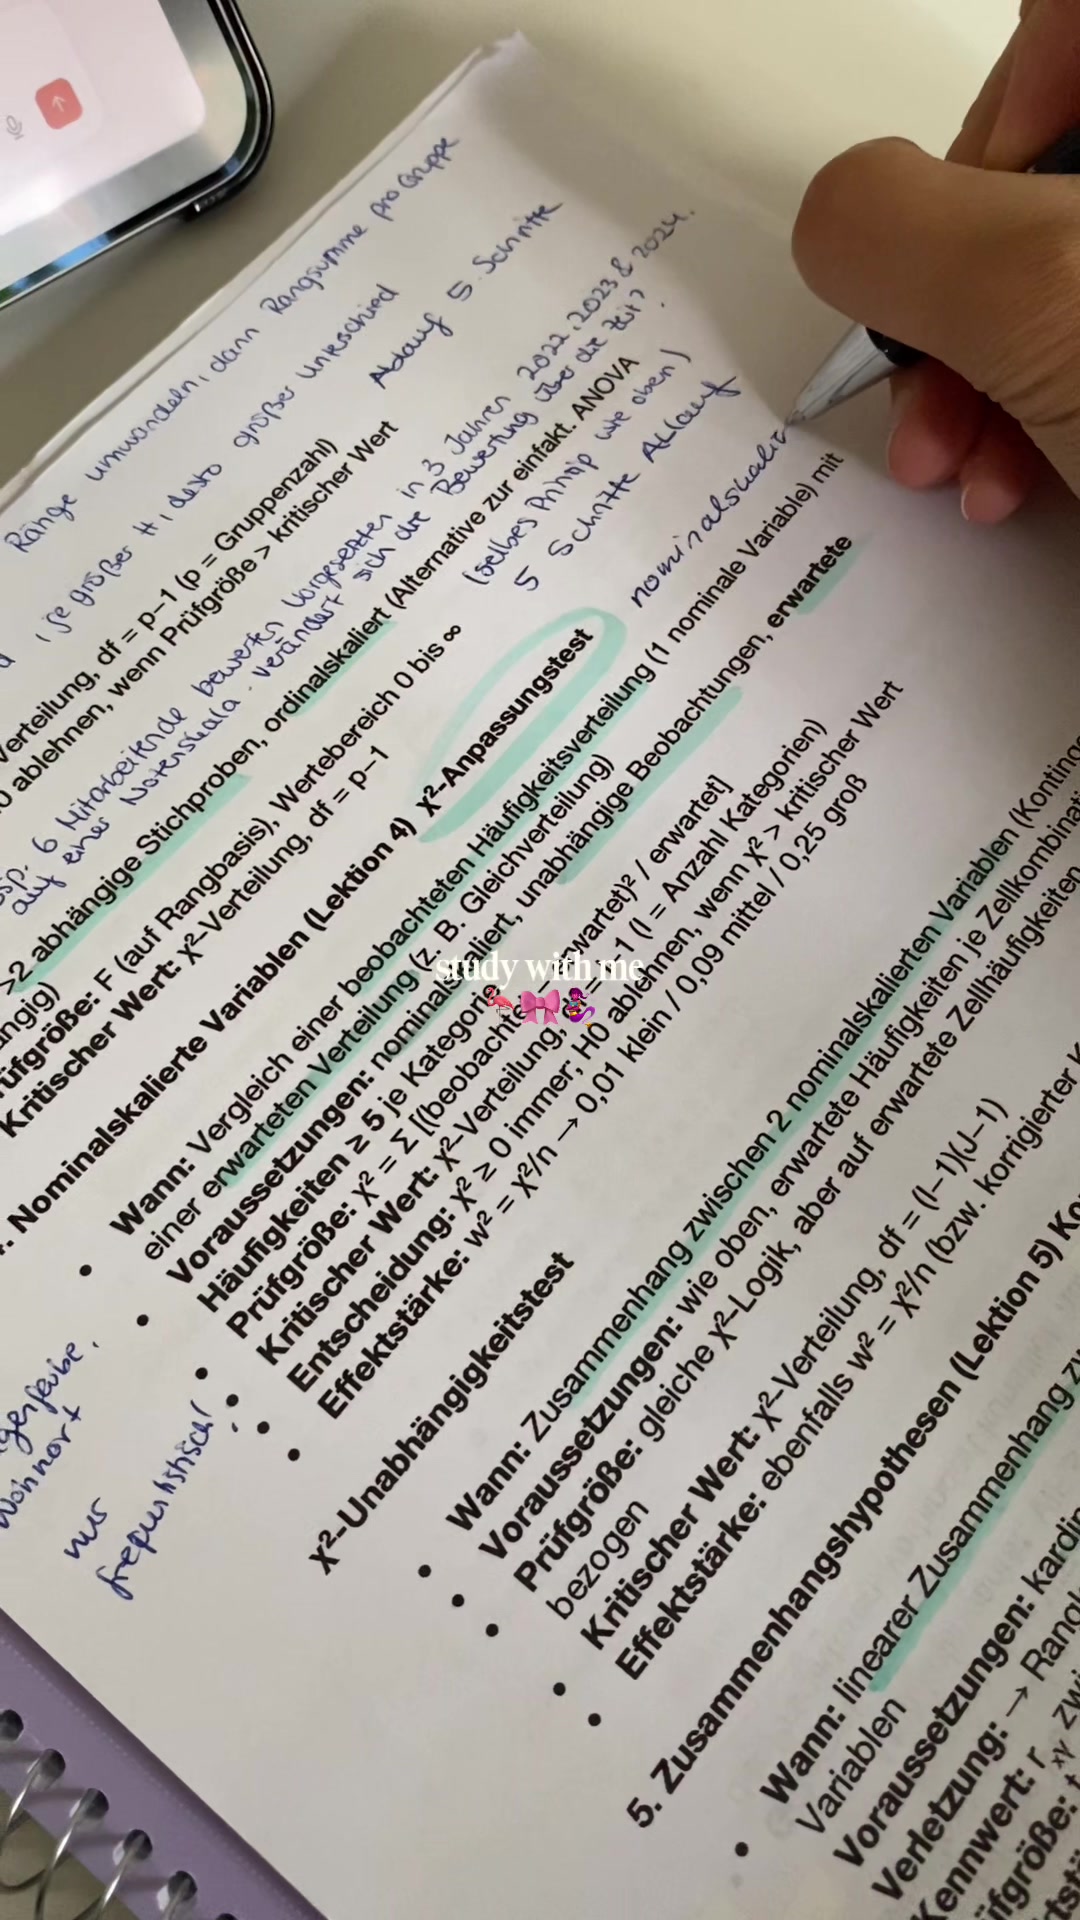 Ränge umwandeln, dann Rangsumme pro Gruppe
je größer H, desto größer Unterschied
Ablauf 5 Schritte
Verteilung, df = p−1 (p = Gruppenzahl)
ablehnen, wenn Prüfgröße > kritischer Wert
Bsp. 6 Mitarbeitende bewerten Vorgesetzten in 3 Jahren 2022, 2023 & 2024.
auf einer Notenskala. verändert sich die Bewertung über die Zeit?
>2 abhängige Stichproben, ordinalskaliert (Alternative zur einfakt. ANOVA
(selbes Prinzip wie oben)
5 Schritte Ablauf
Prüfgröße: F (auf Rangbasis), Wertebereich 0 bis ∞
Kritischer Wert: χ²-Verteilung, df = p−1
Nominalskalierte Variablen (Lektion 4) χ²-Anpassungstest
nominalskalier
Wann: Vergleich einer beobachteten Häufigkeitsverteilung (1 nominale Variable) mit
einer erwarteten Verteilung (z. B. Gleichverteilung)
Voraussetzungen: nominalskaliert, unabhängige Beobachtungen, erwartete
Häufigkeiten ≥ 5 je Kategorie
Prüfgröße: χ² = Σ [(beobachtet − erwartet)² / erwartet]
Kritischer Wert: χ²-Verteilung, 1 (I = Anzahl Kategorien)
Entscheidung: χ² ≥ 0 immer; H0 ablehnen, wenn χ² > kritischer Wert
Effektstärke: w² = χ²/n → 0,01 klein / 0,09 mittel / 0,25 groß
study with me
Wohnort
nur
χ²-Unabhängigkeitstest
Wann: Zusammenhang zwischen 2 nominalskalierten Variablen
Voraussetzungen: wie oben, erwartete Häufigkeiten je
Prüfgröße: gleiche χ²-Logik, aber auf erwartete Zellhäufigkeiten
bezogen
Kritischer Wert: χ²-Verteilung, df = (I−1)(J−1)
Effektstärke: ebenfalls w² = χ²/n (bzw. korrigierter
5. Zusammenhangshypothesen (Lektion 5)
Wann: linearer Zusammenhang
Variablen
Voraussetzungen:
Verletzung: →
Kennwert: r